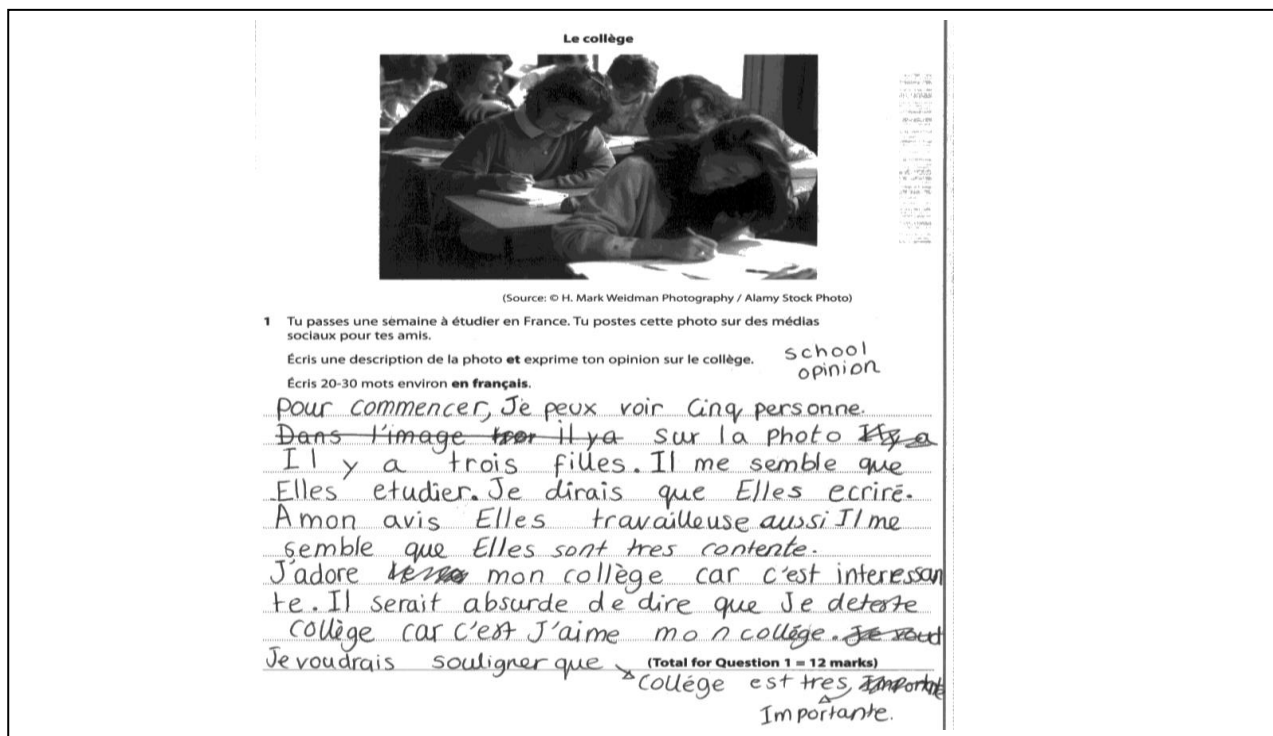 Le collège
(Source: © H. Mark Weidman Photography / Alamy Stock Photo)
1 Tu passes une semaine à étudier en France. Tu postes cette photo sur des médias
sociaux pour tes amis.
Écris une description de la photo et exprime ton opinion sur le collège.
school
opinion
Écris 20-30 mots environ en français.
Pour commencer, Je peux voir Cinq personne.
Dans l'image il ya sur la photo Il y a
Il y a trois filles. Il me semble que
Elles etudier. Je dirais que Elles ecrire.
Amon avis Elles travailleuse aussi Il me
semble que Elles sont tres contente.
J'adore mon collège car c'est interessan
te. Il serait absurde de dire que Je deteste
collège car c'est J'aime mon collége. Je voud
Je voudrais souligner que (Total for Question 1 = 12 marks)
collége est tres, Importante
Importante.